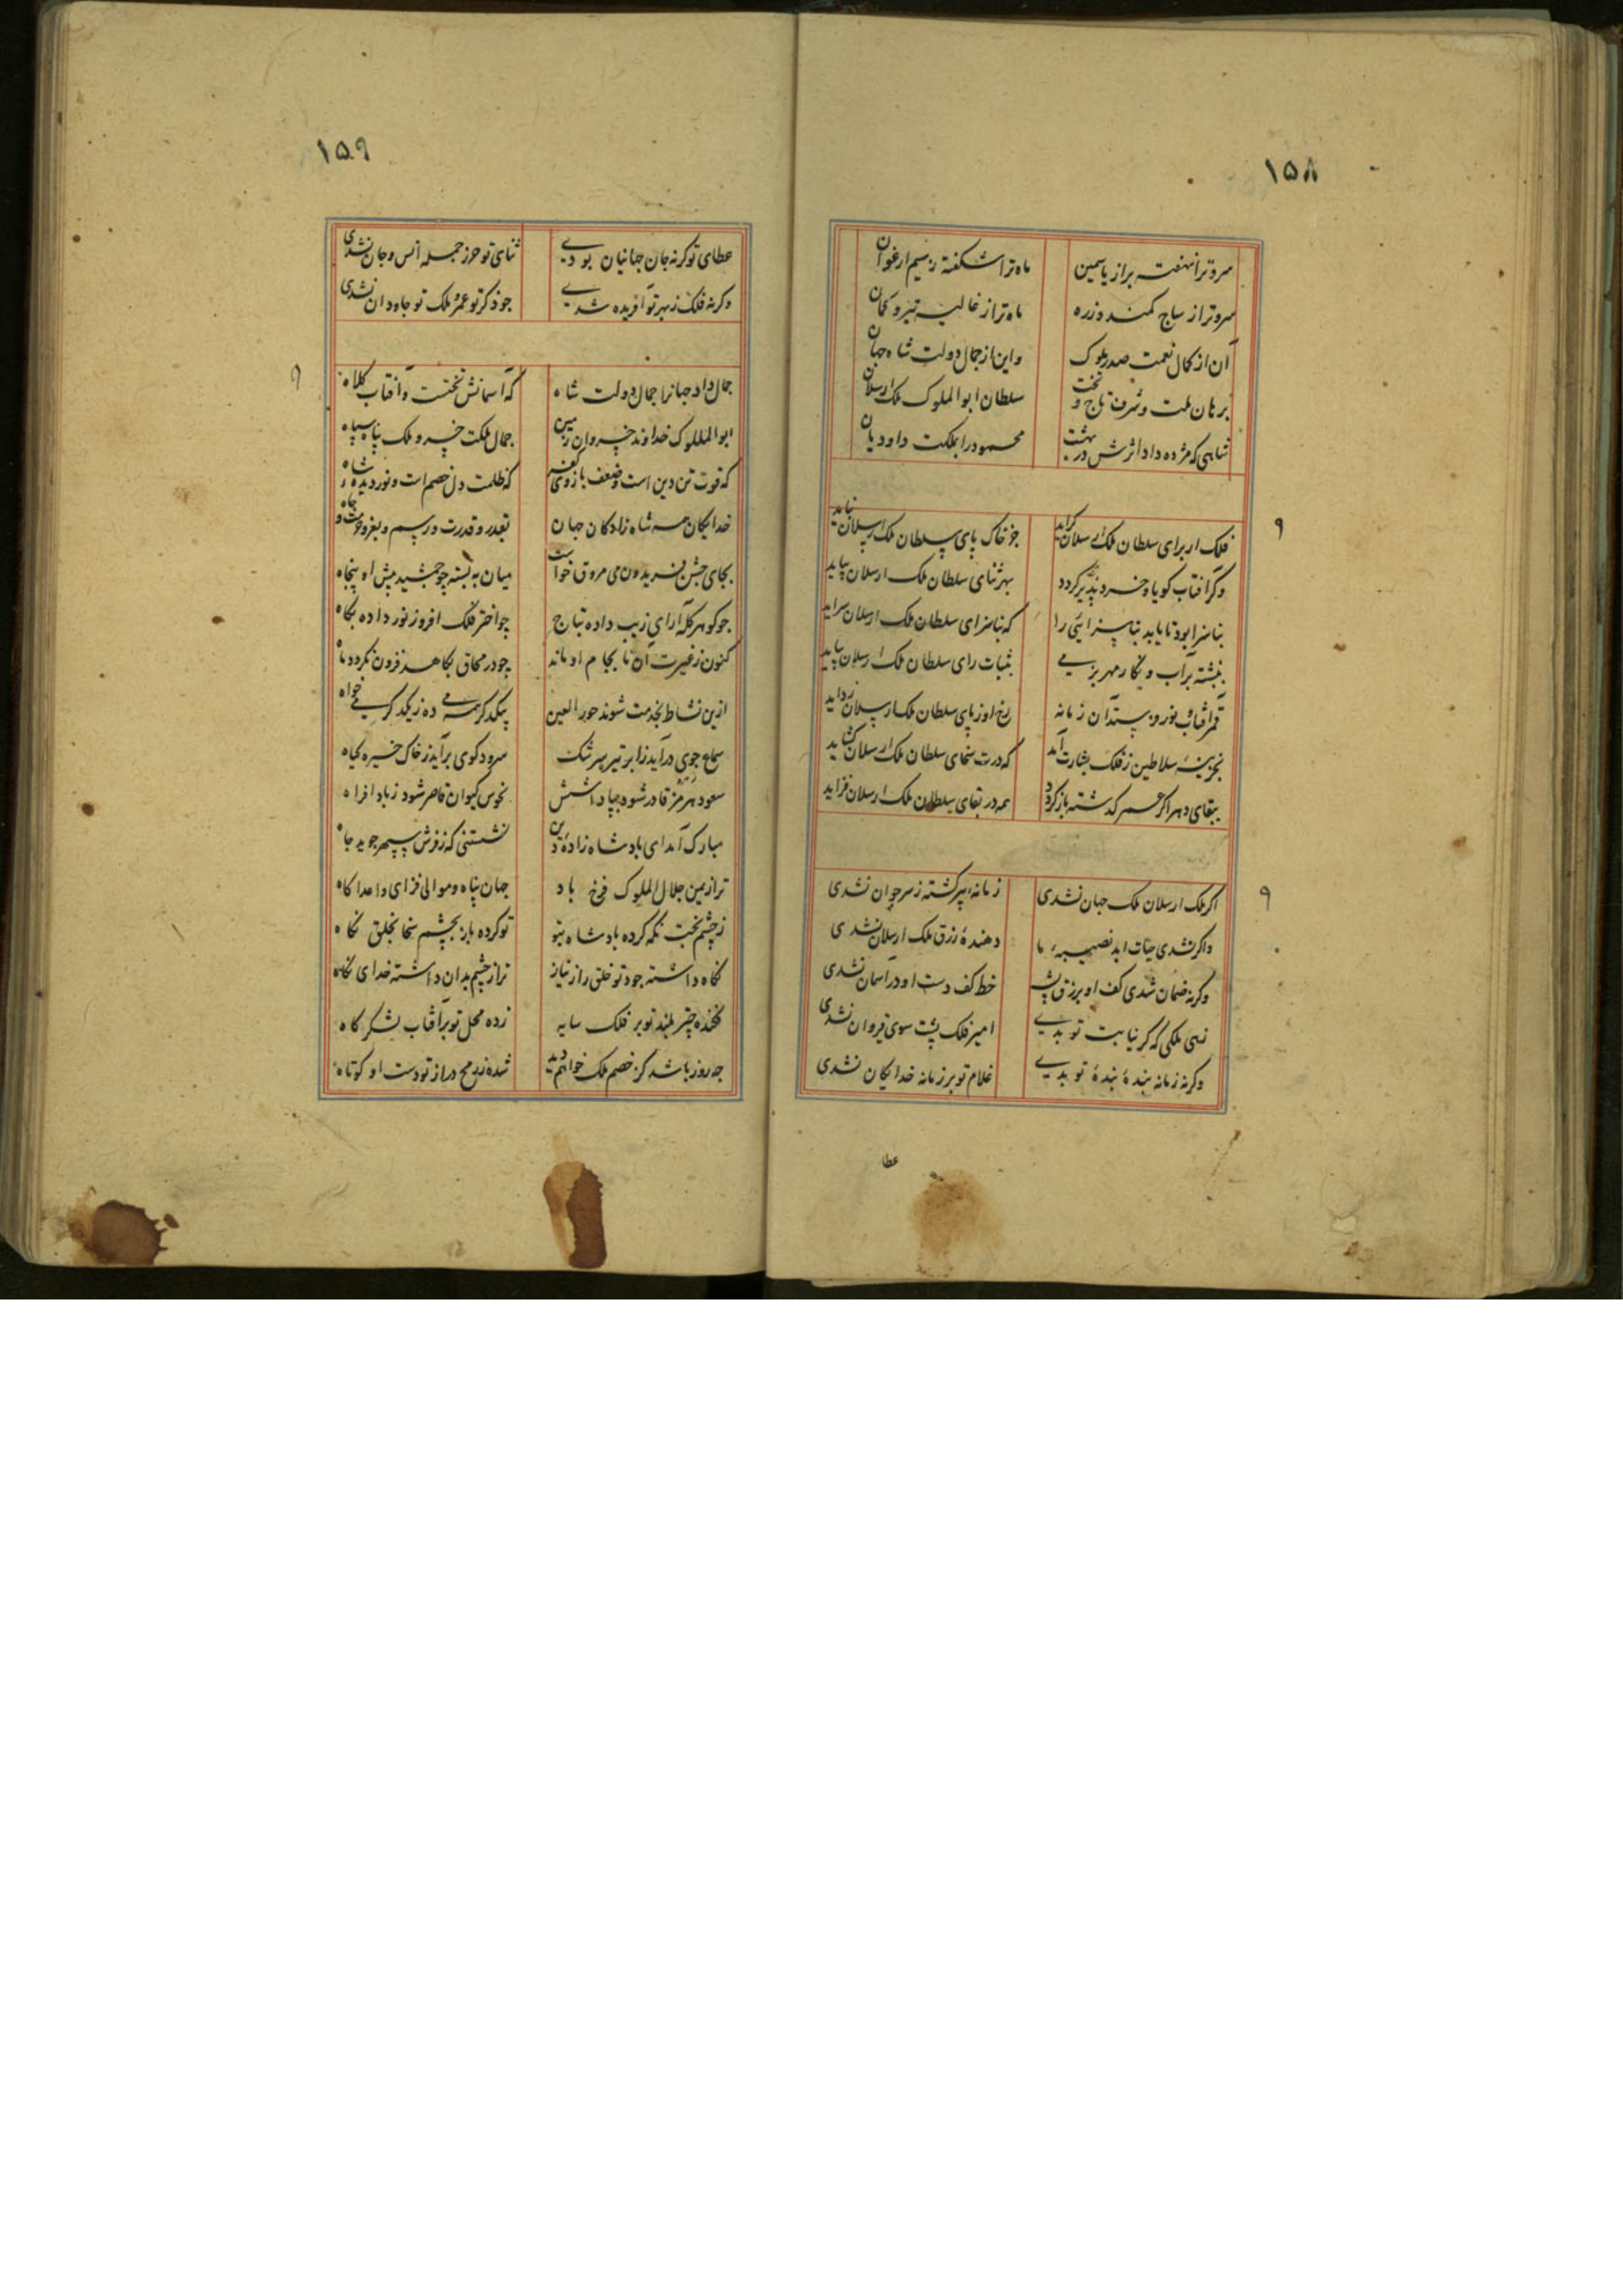 ۱۵۸
سرو ترا نهفته براز یاسمین
ماه ترا شکفته زسیم ارغوان
سرو ترا ز ساج کمند و زره
ماه ترا ز غالیه تیر و کمان
آن از کمال نعمت صدر ملوک
و این از جمال دولت شاه جهان
برهان ملت و شرف تاج و تخت
سلطان ابوالملوک ملک ارسلان
شاهی که مژده داد اثرش در بهشت
محمود را بملکت داودیان
فلک ار برای سلطان ملک ارسلان گراید
جز خاک پای سلطان ملک ارسلان نیابد
وگر آفتاب گویا و خرد پذیر گردد
بهر ثنای سلطان ملک ارسلان
که نیاسزای سلطان ملک ارسلان سراید
نبشته بر آب و نگار مهر بزمی
بثبات رای سلطان ملک ارسلان
رخ او ز پای سلطان ملک ارسلان
سلاطین ز فلک بشارت آمد
که در سخای سلطان ملک ارسلان گشاید
ببقای دهر اگر عمر گذشته بازگردد
همه در بقای سلطان ملک ارسلان فزاید
اگر ملک ارسلان ملک جهان نشدی
زمانه پیر گشته ز سر جوان نشدی
و اگر نشدی حیات ابد نصیبه ما
دهندهٔ رزق ملک ارسلان نشدی
وگرنه ضمان شدی کف او برزق
خط کف دست او در آسمان نشدی
زهی ملکی که گر نیابت تو بدی
امیر فلک پشت سوی قیروان نشدی
وگرنه زمانه بندهٔ بندهٔ تو بدی
غلام تو بر زمانه خدایگان نشدی
عطا
۱۵۹
عطای تو گرنه جان جهانیان بودی
ثنای تو حرز جمله انس و جان نشدی
وگرنه فلک ز بهر تو آفریده شدی
جو ذکر تو عمر و ملک تو جاودان نشدی
جمال داد جهانرا جمال دولت شاه
که آسمانش تختست و آفتاب کلاه
ابوالملوک خداوند خسروان زمین
جمال ملکت خسرو ملک پناه سپاه
که قوت تن دین است و ضعف بازوی کفر
که ظلمت دل خصم است و نور دیده شاه
خدایگان همه شاه زادگان جهان
بقدر و قدرت و رسم و بفر و حشمت و جاه
بجای جشن فریدون می مروق خواست
میان به بسته چو جمشید پیش او پنجاه
جو گوهر کله آرای زیب داده بتاج
چو اختر فلک افروز نور داده بگاه
کنون ز غیرت آن تا بجام او ماند
جو در محاق بکاهد فزون نگردد ماه
ازین نشاط بخدمت شوند حور العین
سماع جوی درآید ز ابر تیره سرشک
سرود گوی برآید ز خاک خیره گیاه
سعود هرمز قادر شود بپاداشش
نحوس کیوان قاصر شود ز باد افراه
مبارک آمد ای پادشاه زادهٔ دین
نشستنی که ز فرش سپهر جوید جاه
ترا زیمن جلال الملوک فرخ باد
جهان پناه و موالی فزای و اعدا کاه
ز چشم بخت نگه کرده پادشاه بتو
تو کرده باز بچشم سخا بخلق نگاه
نگاه داشته جود تو خلق را ز نیاز
ترا ز چشم بدان داشته خدای نگاه
فکنده چتر بلند تو بر فلک سایه
زده محل تو بر آفتاب لشکر گاه
جه روز باشد کز خصم ملک خواهم دید
شده ز رمح دراز تو دست او کوتاه